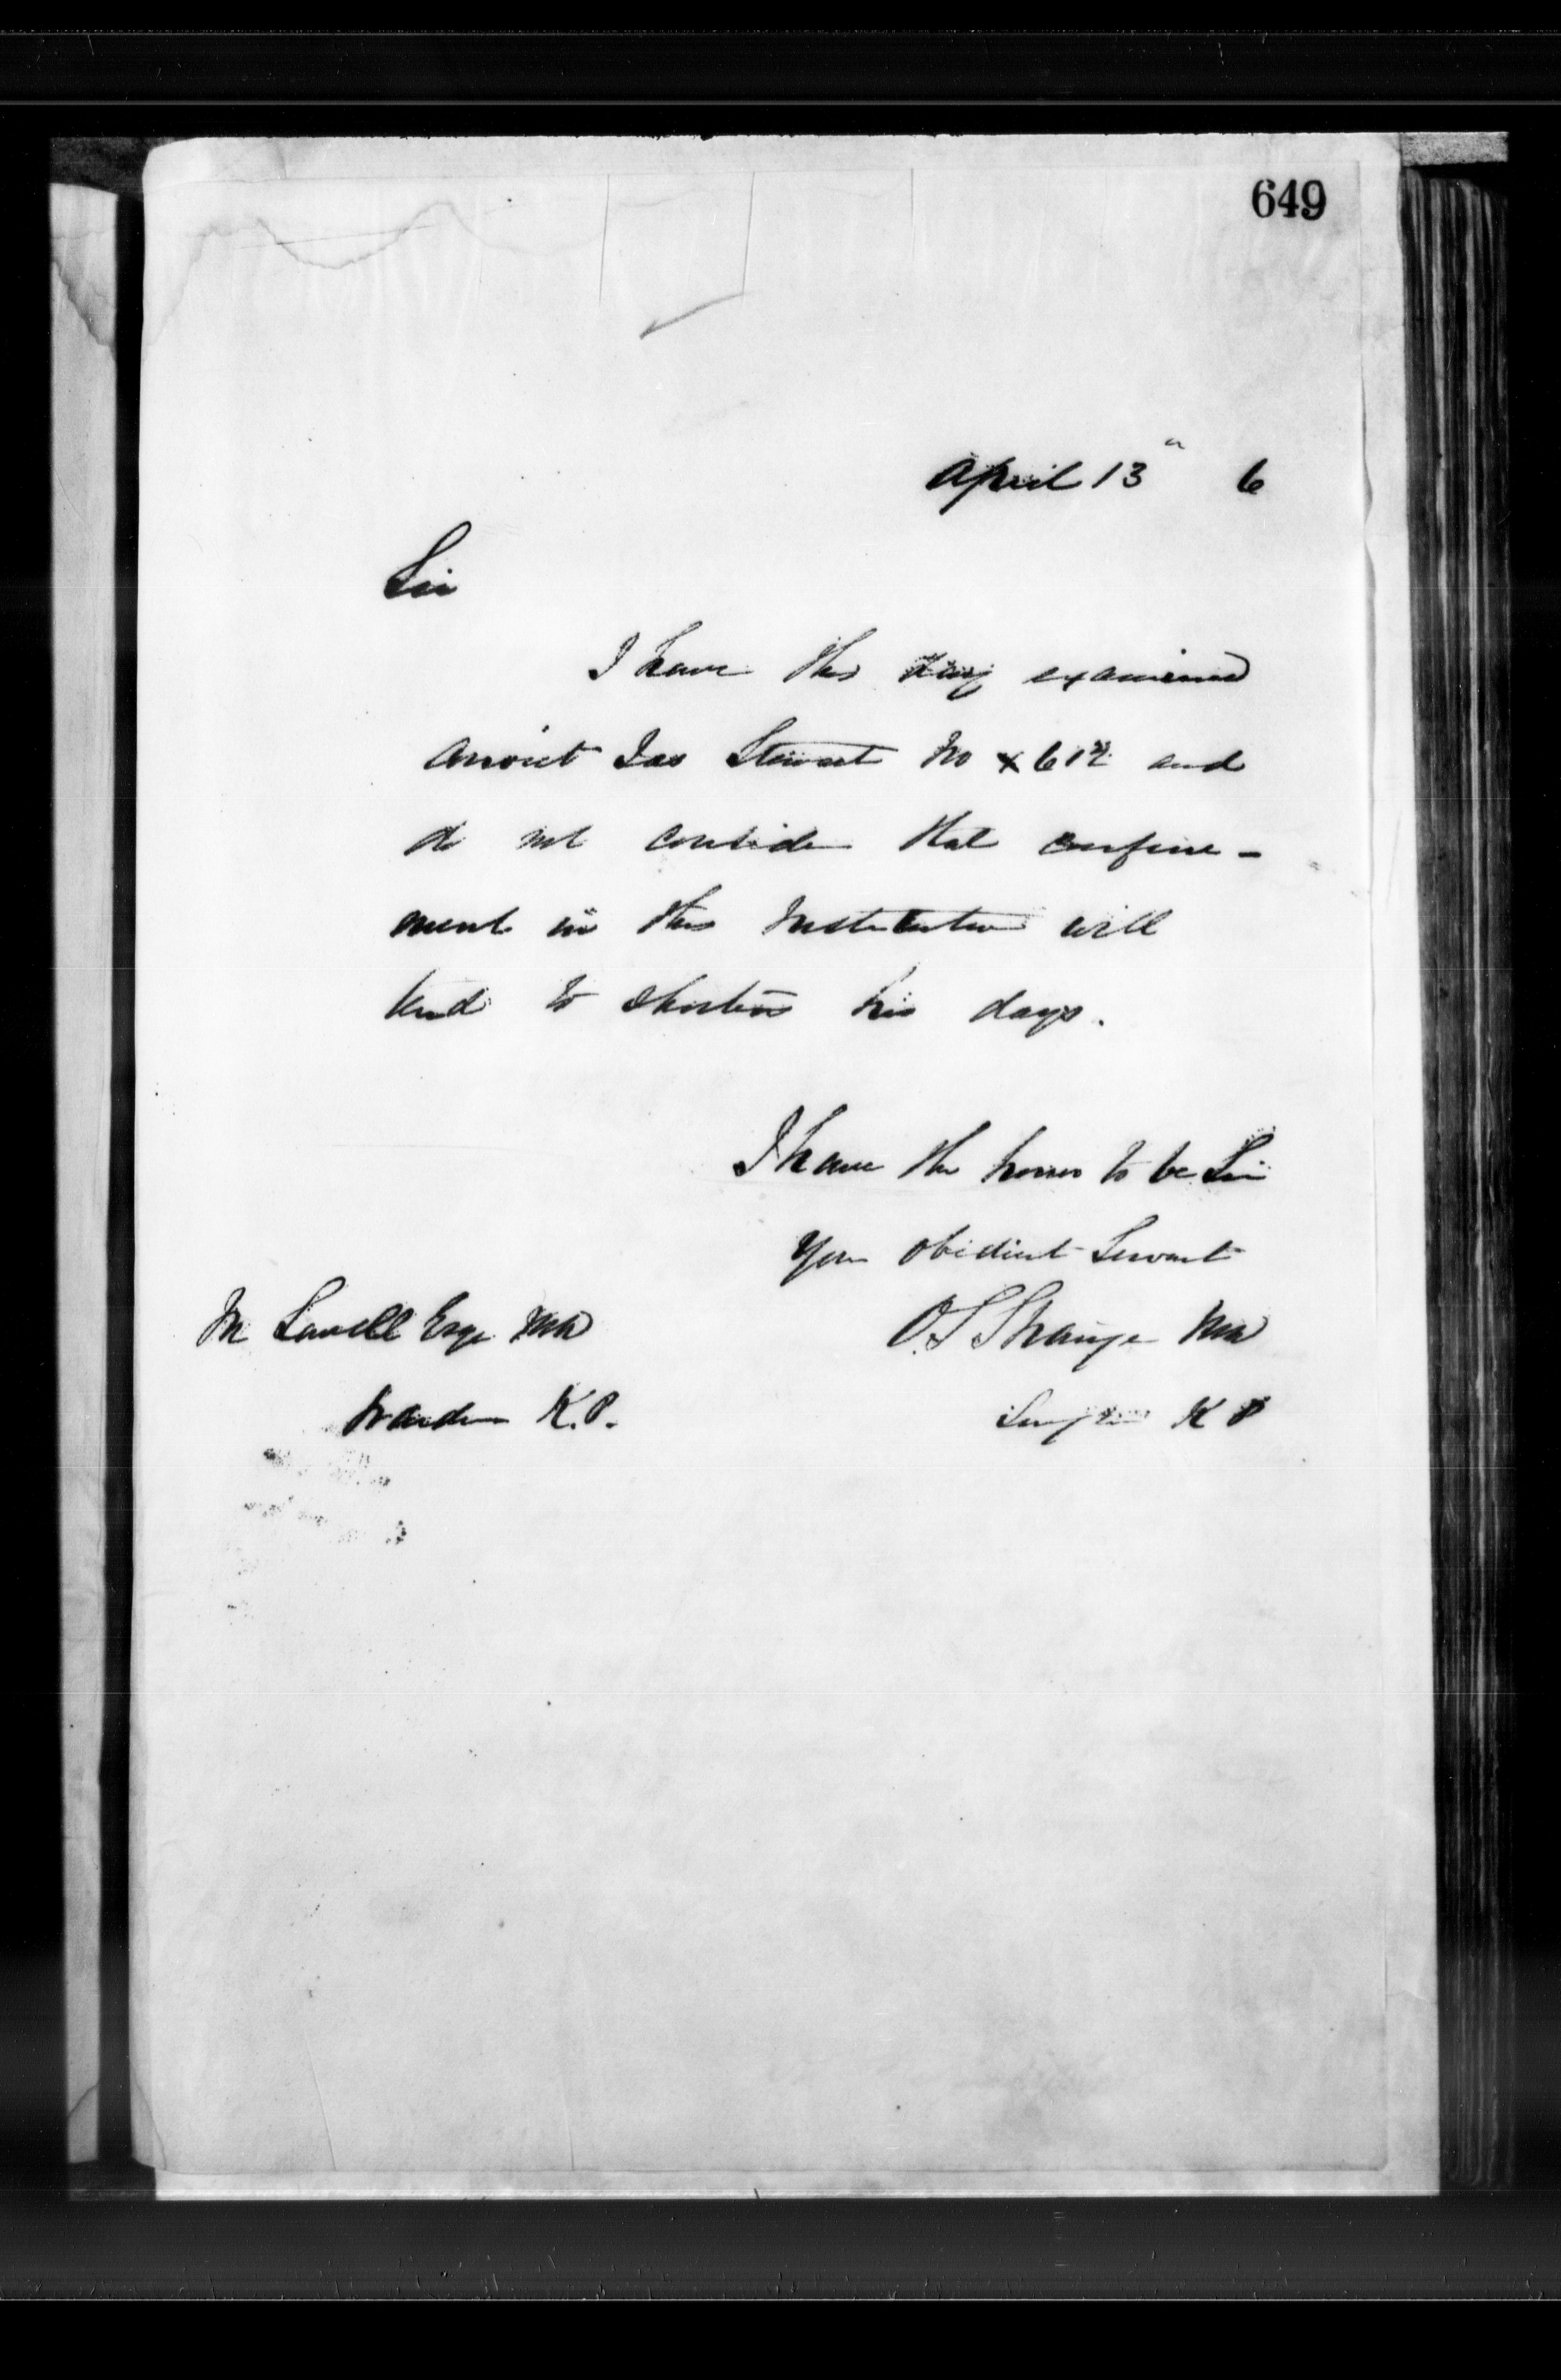 649
April 13th 6
Sir
I have this day examined
Convict Jas Stewart No X612 and
do not consider that confine-
ment in this Institution will
tend to shorten his days.
I have the honor to be Sir
Your obedient Servant
M Lavell Esqr MD
O.S Strange MD
Warden K.P.
Surgeon K P